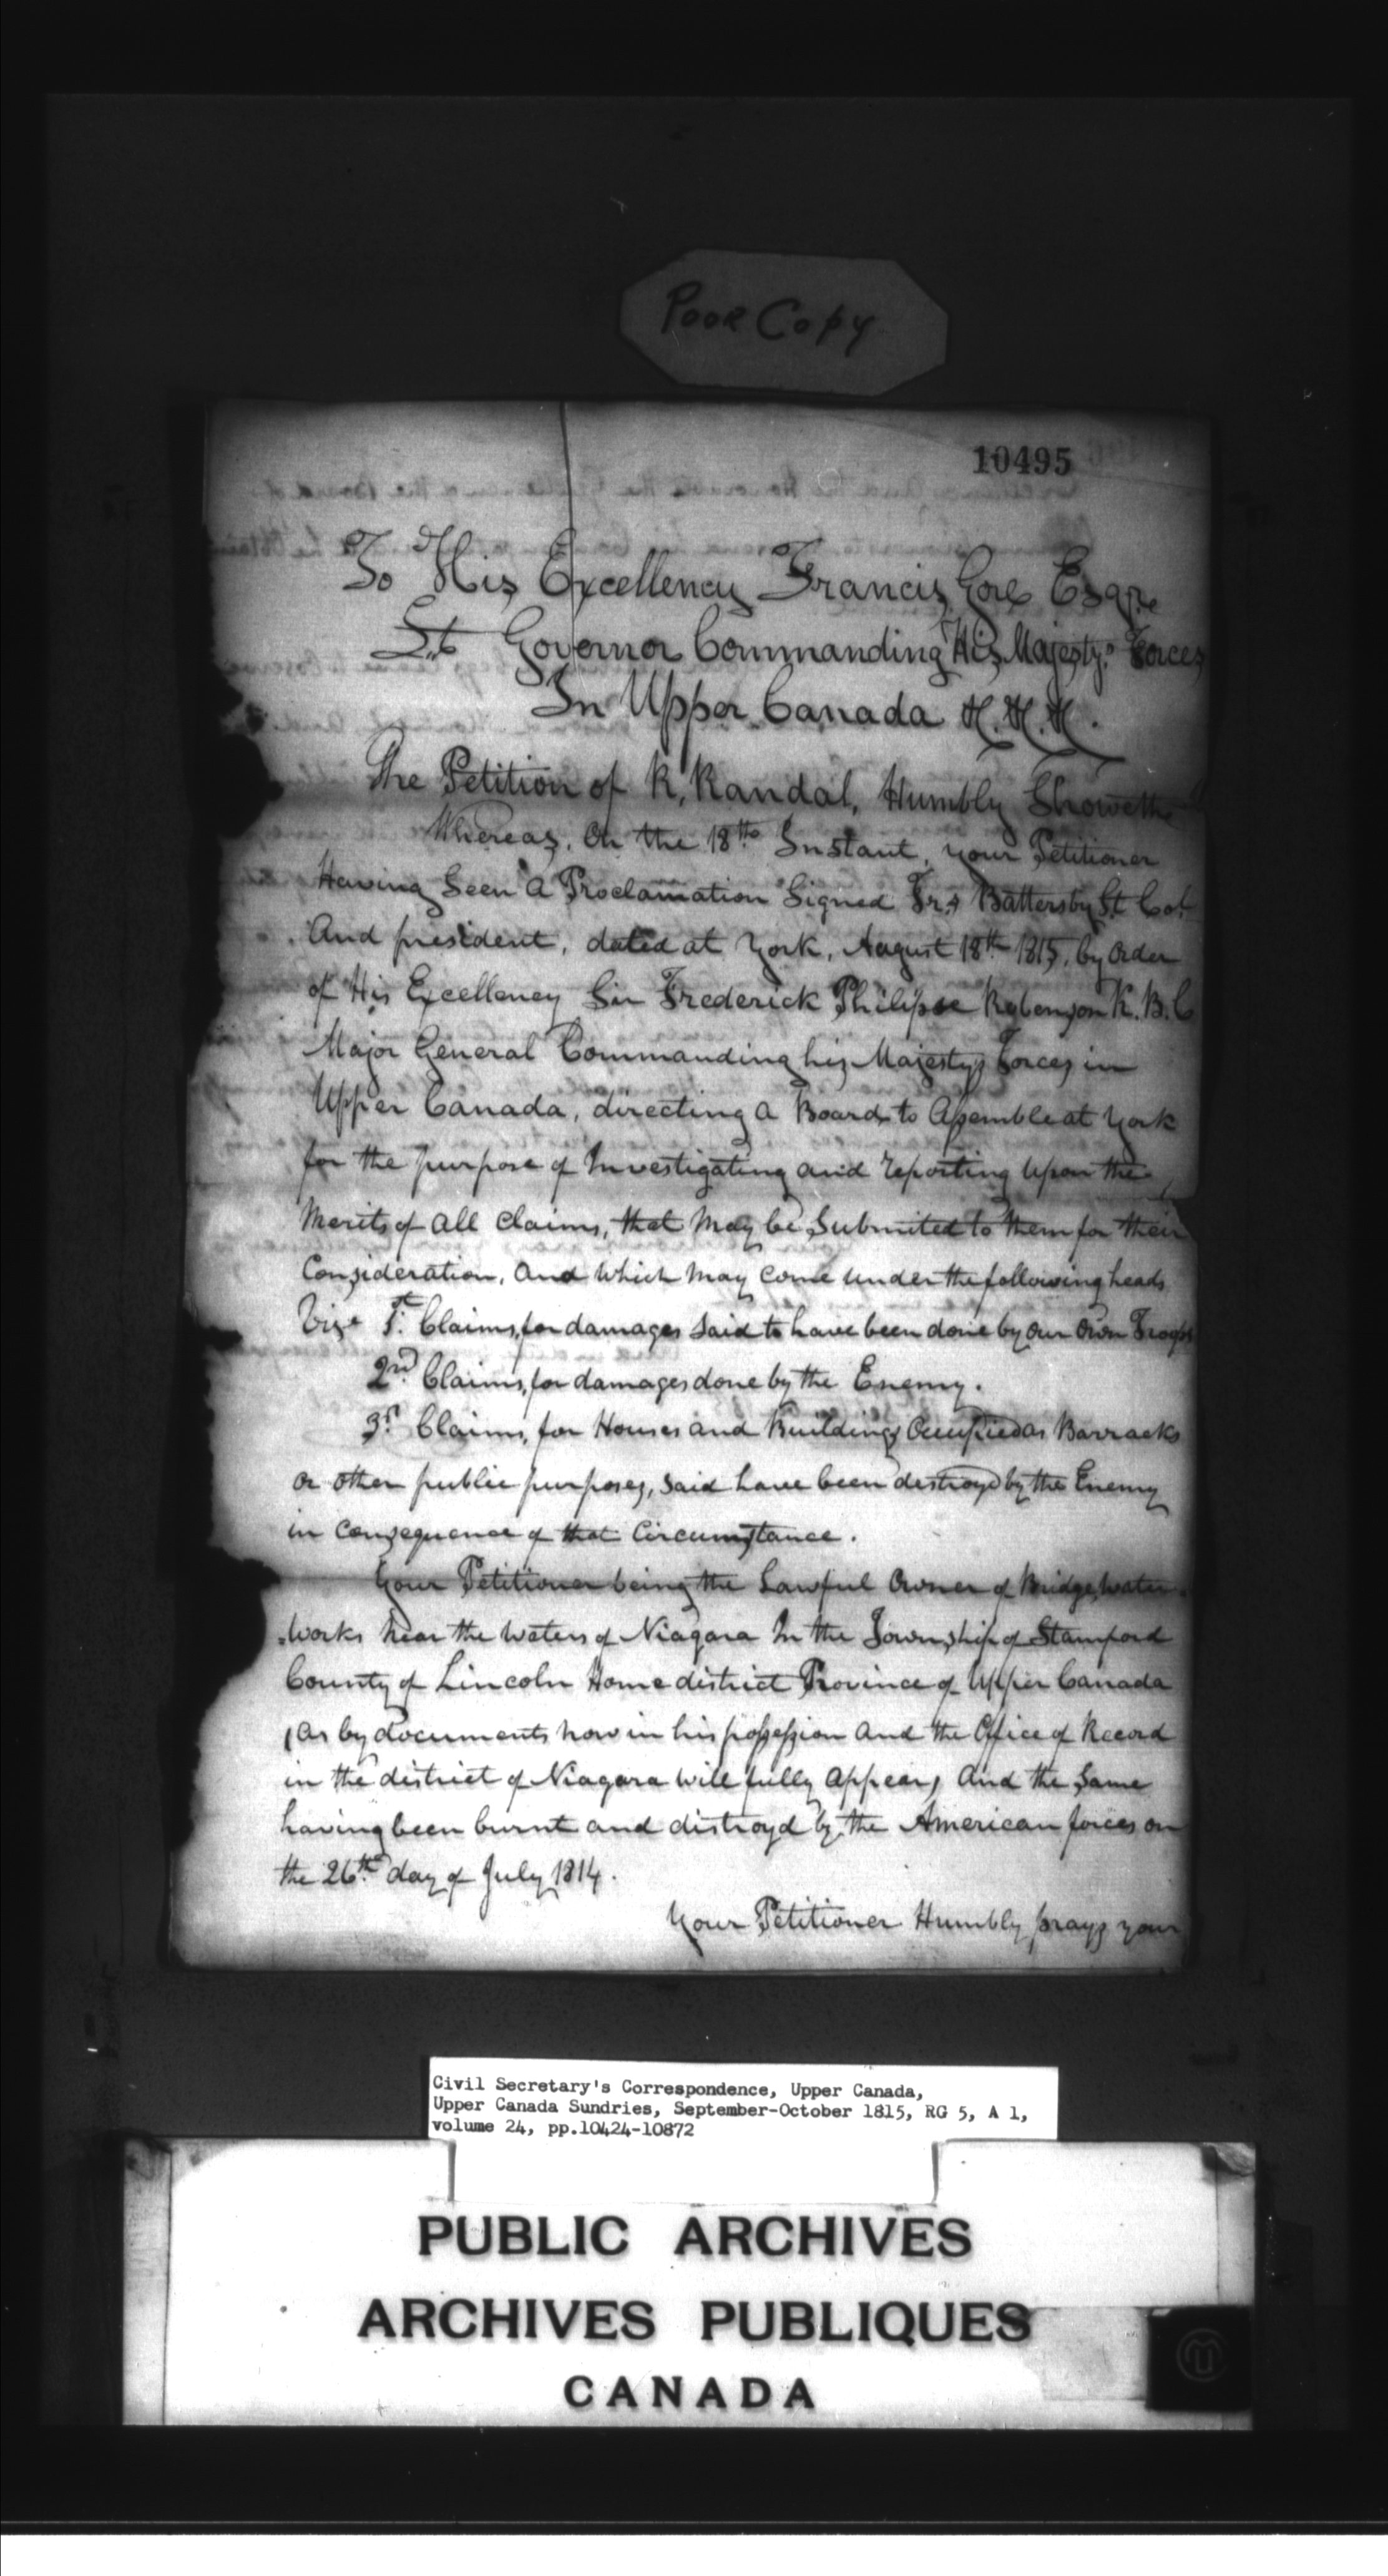 Poor Copy
10495
To His Excellency Francis Gore Esqr.
Lt Governor Commanding His Majesty's Forces
In Upper Canada
The Petition of R. Randal, Humbly Showeth
Whereas, On the 18th Instant, your Petitioner
Having Seen A Proclamation Signed Frs Battersby Lt Col.
And president, dated at York, August 18th 1815, by order
of His Excellency Sir Frederick Philipse Robenson K.B.C
Major General Commanding his Majestys Forces in
Upper Canada, directing a Board to Assemble at York
for the purpose of Investigating and reporting Upon the
Merits of all Claims, that May be Submited to them for their
Consideration, And which May Come under the following heads
Vizt 1st Claims, for damages Said to have been done by our Own Troops
2nd Claims, for damages done by the Enemy.
3d Claims, for Houses and Buildings Occupied as Barracks
or other public purposes, said have been destroyd by the Enemy
in Consequence of that Circumstance.
Your Petitioner being the Lawful Owner of Bridgewater
works near the Waters of Niagara In the Township of Stamford
County of Lincoln Home district Province of Upper Canada
(As by documents now in his possession And the Office of Record
in the district of Niagara will fully Appear) And the Same
having been burnt and distroyd by the American forces on
the 26th day of July 1814.
Your Petitioner Humbly prays your
Civil Secretary's Correspondence, Upper Canada,
Upper Canada Sundries, September-October 1815, RG 5, A 1,
volume 24, pp.10424-10872
PUBLIC ARCHIVES
ARCHIVES PUBLIQUES
CANADA